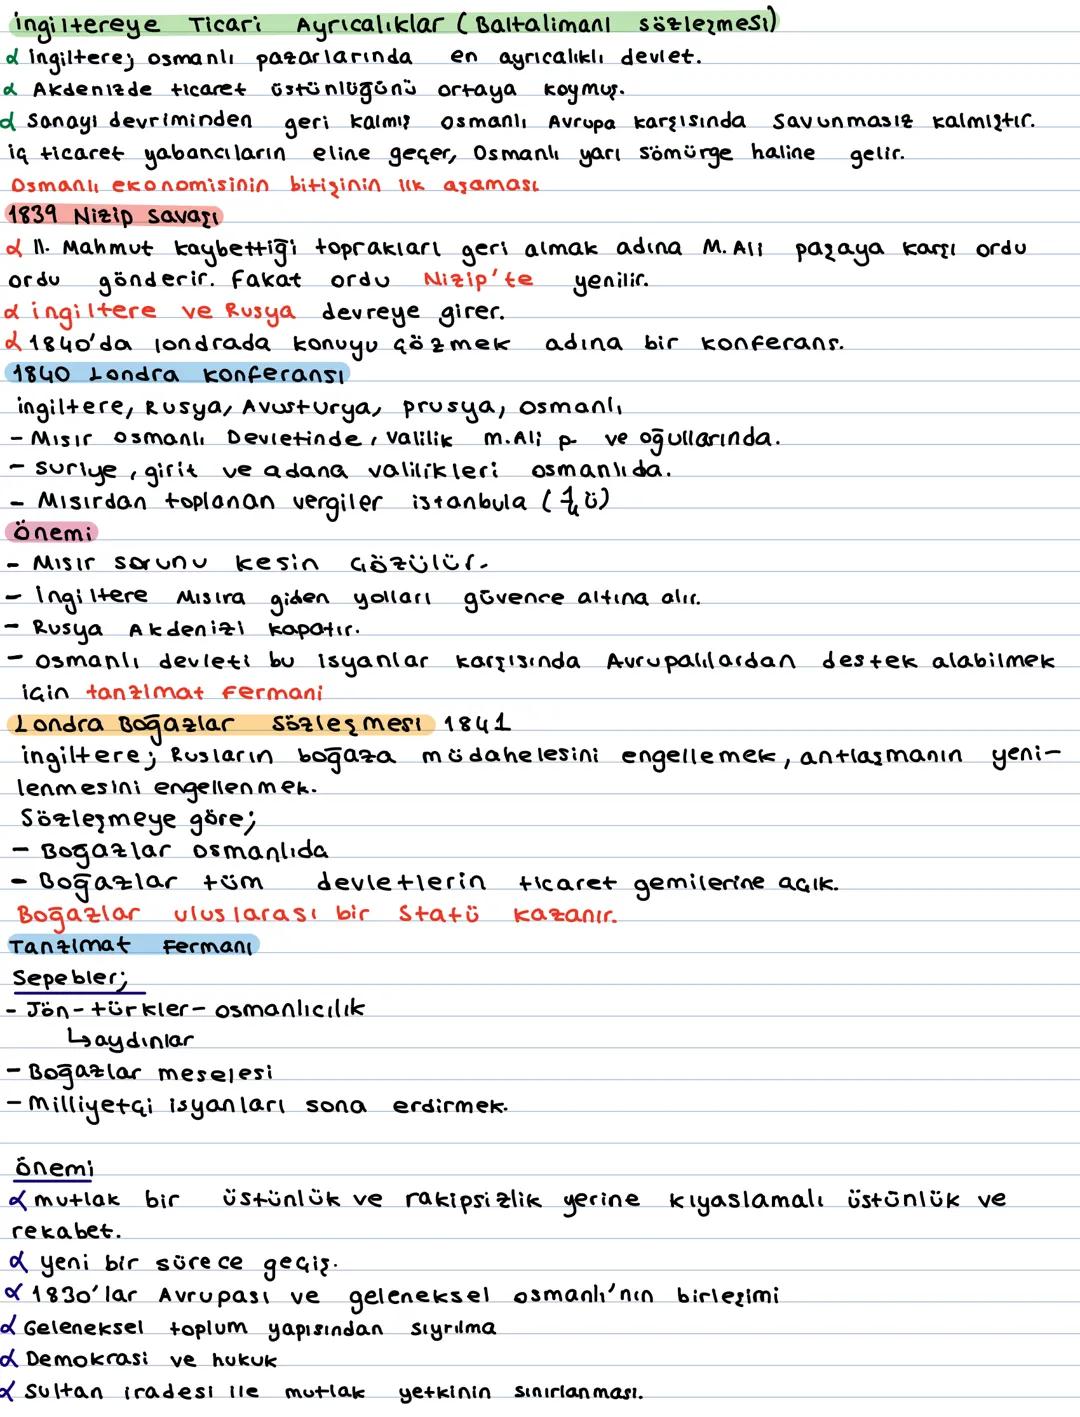 ingiltereye Ticari Ayrıcalıklar (Baltalimanı sözleşmesi)
α ingiltere; osmanlı pazarlarında en ayrıcalıklı devlet.
α Akdenizde ticaret üstünlüğünü ortaya koymuş.
α Sanayi devriminden geri kalmış osmanlı Avrupa karşısında savunmasız kalmıştır.
iç ticaret yabancıların eline geçer, Osmanlı yarı sömürge haline gelir.
Osmanlı ekonomisinin bitişinin ilk aşaması
1839 Nizip Savaşı
α II. Mahmut kaybettiği toprakları geri almak adına M. Ali paşaya karşı ordu
ordu gönderir. Fakat ordu Nizip'te yenilir.
α ingiltere ve Rusya devreye girer.
α 1840'da londrada konuyu çözmek adına bir konferans.
1840 Londra Konferansı
ingiltere, Rusya, Avusturya, prusya, osmanlı
- Mısır osmanlı Devletinde, Valilik M.Ali p ve oğullarında.
- suriye, girit ve adana valilikleri osmanlıda.
- Mısırdan toplanan vergiler istanbula (1/4 ü)
Önemi
- Mısır sorunu kesin çözülür.
- İngiltere Mısıra giden yolları güvence altına alır.
- Rusya Akdenizi kapatır.
- osmanlı devleti bu isyanlar karşısında Avrupalılardan destek alabilmek
için tanzimat fermani
Londra Boğazlar Sözleşmesi 1841
ingiltere; Rusların boğaza müdahelesini engellemek, antlaşmanın yeni-
lenmesini engellenmek.
Sözleşmeye göre;
- Boğazlar osmanlıda
- Boğazlar tüm devletlerin ticaret gemilerine açık.
Boğazlar uluslarası bir Statü kazanır.
Tanzimat Fermanı
Sepebler;
- Jön-türkler- osmanlıcılık
↳aydınlar
- Boğazlar meselesi
- Milliyetçi isyanları sona erdirmek.
önemi
α mutlak bir üstünlük ve rakipsizlik yerine kıyaslamalı üstünlük ve
rekabet.
α yeni bir sürece geçiş.
α 1830'lar Avrupası ve geleneksel osmanlı'nın birleşimi
α Geleneksel toplum yapısından sıyrılma
α Demokrasi ve hukuk
α Sultan iradesi ile mutlak yetkinin sınırlanması.